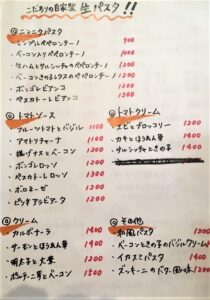 こだわりの自家製 生パスタ!!
◎ニンニクパスタ
シンプルペペロンチーノ 900
ベーコン入りペペロンチーノ 1000
生ハムとサルシッチャのペペロンチーノ 1200
ベーコンきのことレタスのペペロンチーノ 1200
ボンゴレビアンコ 1200
ペスカトーレビアンコ 1300
◎トマトソース
フルーツトマトとバジル 1100
アマトリチャーナ 1100
揚げナスとベーコン 1200
ボンゴレロッソ 1200
ペスカトーレロッソ 1300
ボロネーゼ 1200
ピリ辛アラビアータ 1200
◎トマトクリーム
エビとブロッコリー 1300
カキとほうれん草 1400
サルシッチャときの子 1400
◎クリーム
カルボナーラ 1400
サーモンとほうれん草 1400
明太子と大葉 1200
ポルチーニ茸とベーコン 1500
◎その他
和風パスタ 1300
ベーコンときの子のバジルクリーム 1300
イカスミパスタ 1400
ズッキーニのバター風味 1200